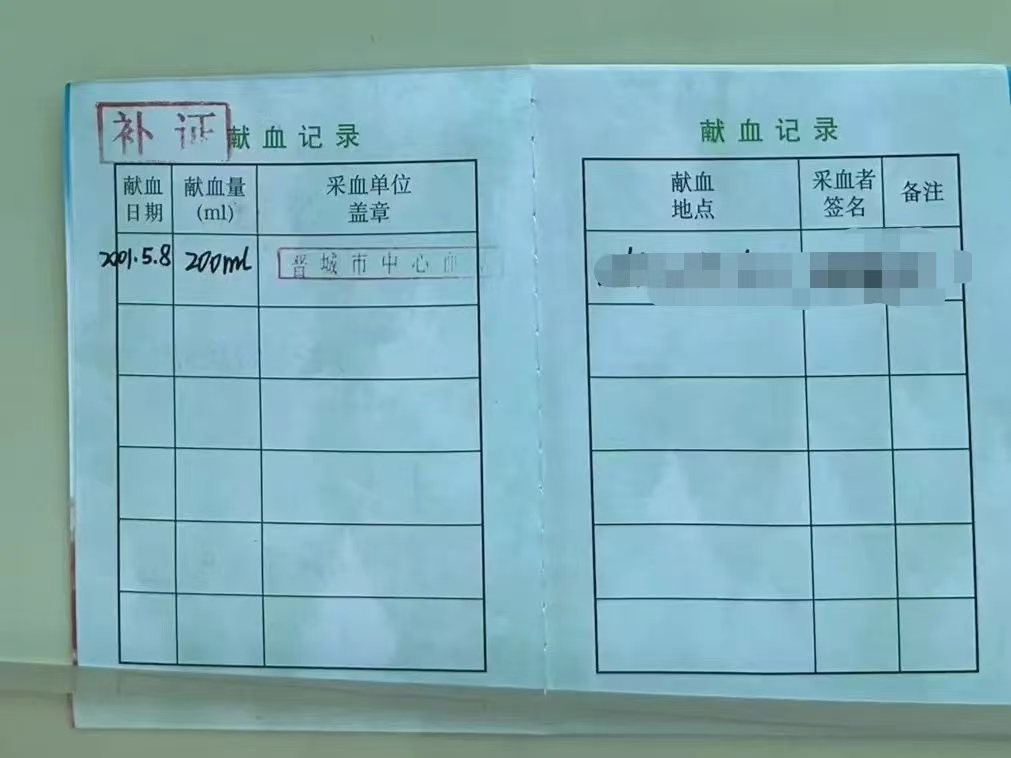 补证
献血记录
献血日期
献血量(ml)
采血单位盖章
2001.5.8
200ml
晋城市中心血
献血记录
献血地点
采血者签名
备注